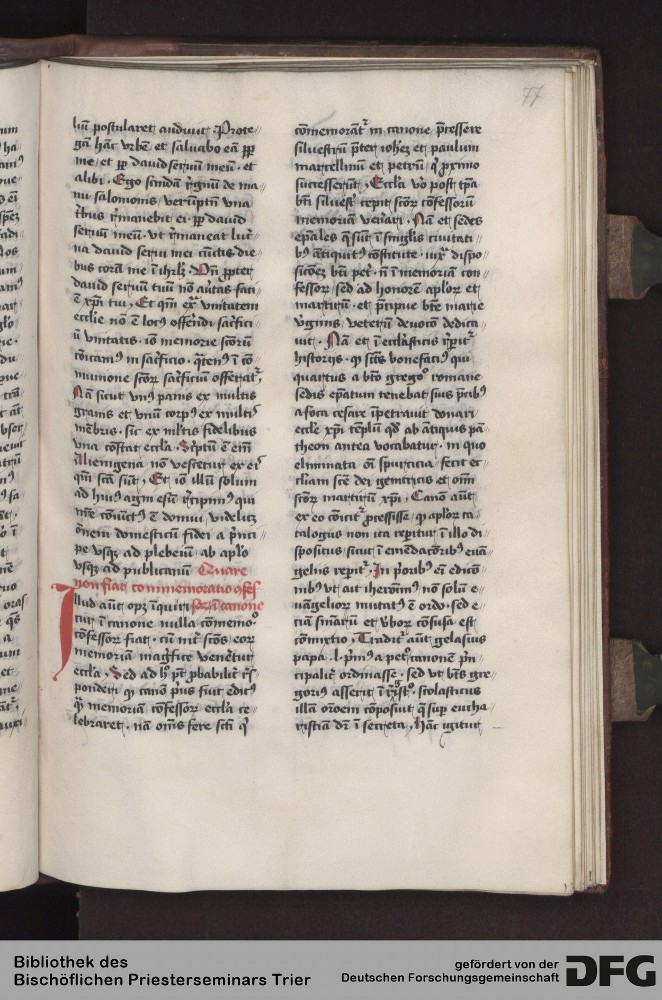 77
liū postularet audivit Prote
gā hāc vrbē et salvabo eā ꝓp̄
me et ꝓp̄ david servū meū et
alibi Ergo scindā regnū de ma
nu salomonis verūptn̄ una
tribus remanebit ei ꝓp̄ david
servū meū ut remaneat lucer
na david servi mei cunctis die
bus corā me ī ihrlm̄ Oꝛ̄ ꝓpter
david servū tuū nō avertas faci
ē xpi tui Et qm̄ extra unitatem
ecclie nō ē locus offerēdi sacrifici
ū unitatis iō memorie scōrū
cōicamus in sacrificio ꝗtenus ī cō
munione scōr sacrificiū offeratur
Nā sicut unus panis ex multis
granis et unū corpus ex multis
mēbris sic ex multis fidelibus
una cōstat ecclia Scriptū ē em̄
Alienigena nō vescetur ex eis
qm̄ scā sunt Et iō illū solum
ad huius agni esū recipimus qui
nr̄e coniunctus ē domui videlicet
ōnem domesticū fidei a prīci
pe usꝗ ad plebeiū ab aplō
usꝗ ad publicanū Quare
non fiat commemoratio cōfes
Illud aūt opꝫ īquiri soꝝ ī canone
cur ī canone nulla cōmemoo
cōfessor fiat cū inter scōs eor
memoriā magnifice venetur
ecclā Sed ad hoc pt probabiliter res
ponderi ꝙ canō prius fuit editus
ꝗ memoriā cōfessor ecclā ce
lebraret nā om̄s fere scti ꝗ
cōmemorātr in canone p̄cessere
silvestrū preter iohēz et paulum
marcellinū et petrū ꝗ proximo
successerūt Eccla vo post tpa
bti silvestri cepit scōr cōfessorū
memoriā venerari Nā et sedes
ep̄ales ꝗ sūt ī singulis civitati
bus ātiquitus cōstitute iuxta dispo
sicōez bti pet nō ī memoriā con
fessor sed ad honorē aplor et
martirū et p̄cipue bte marie
virginis veterū devotō dedica
vit Nā et ī ecclāsticis reperitr
historijs ꝙ scūs bonefacius qui
quartus a bto grego romane
sedis ep̄atum tenebat suis precibus
a foca cesare īpetravit donari
eccle xpi tēplū qd ab ātiquis pā
theon antea vocabatur in quo
eliminata oī spurcicia fecit ec
cliam sce dei genitricis et om̄
scōr martirū xpi Canō aūt
ex eo cōicitr processisse ꝙ aplor ca
talogus non ita reperitur ī illo di
spositus sicut ī emēdatoribus evā
gelijs reperitur In prioribus em̄ edicō
nibus ut ait iheronimus nō solū e
vāgelior mutatus ē ordo sed e
ciā sniarū et verbor cōfusa est
cōmixtio Traditur aūt gelasius
papa l primus a peto canonē prin
cipaliter ordinasse sed ut btūs gre
gorius asserit ī registro scolasticus
illā oroem cōposuit ꝗ super eucha
ristiā dr ī secreta hāc igitur
Bibliothek des
Bischöflichen Priesterseminars Trier
gefördert von der
Deutschen Forschungsgemeinschaft
DFG